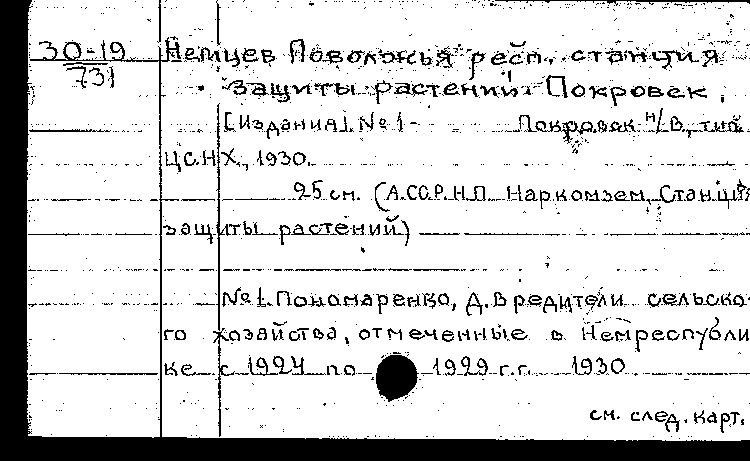 30-19 Немцев Поволжья респ. станция
731 защиты растений. Покровск.
[Издания]. № 1- Покровск н/В, тип.
ЦСНХ, 1930.
25 см. (А.ССР.Н.П. Наркомзем. Станция
защиты растений)
№ 1. Пономаренко, Д. Вредители сельско-
го хозяйства, отмеченные в Немреспубли
ке с 1924 по 1929 г.г. 1930
см. след. карт.